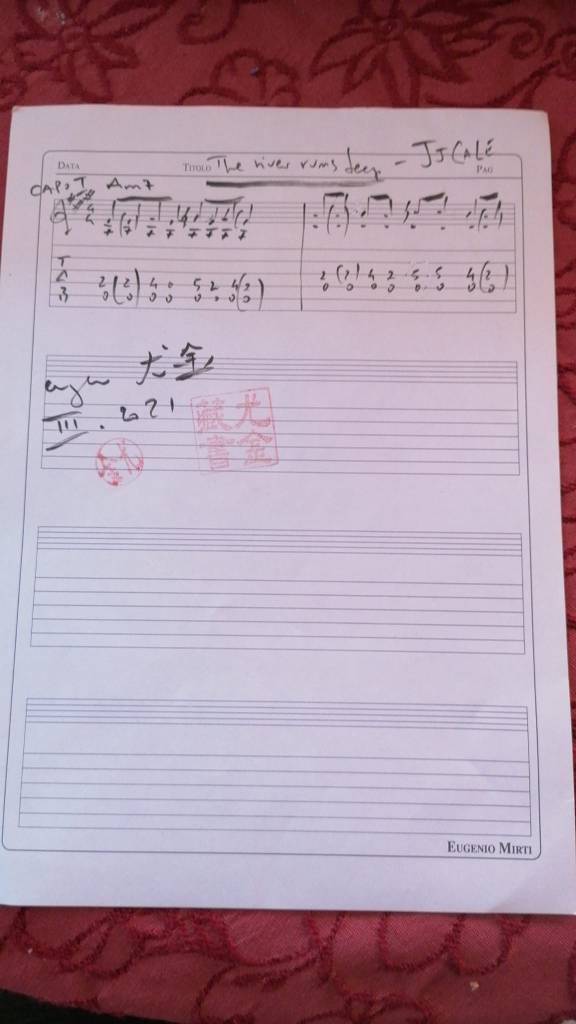 DATA TITOLO The river runs deep - JJ CALE PAG
CAPO I Am7
4
4
T 2 (2) 4 0 5 2 4 (2) 2 (2) 4 2 5 5 4 (2)
A 0 0 0 0 0 0 0 0 0 0 0 0 0
B
尤金
III. 2021
尤金
藏書
尤金
EUGENIO MIRTI